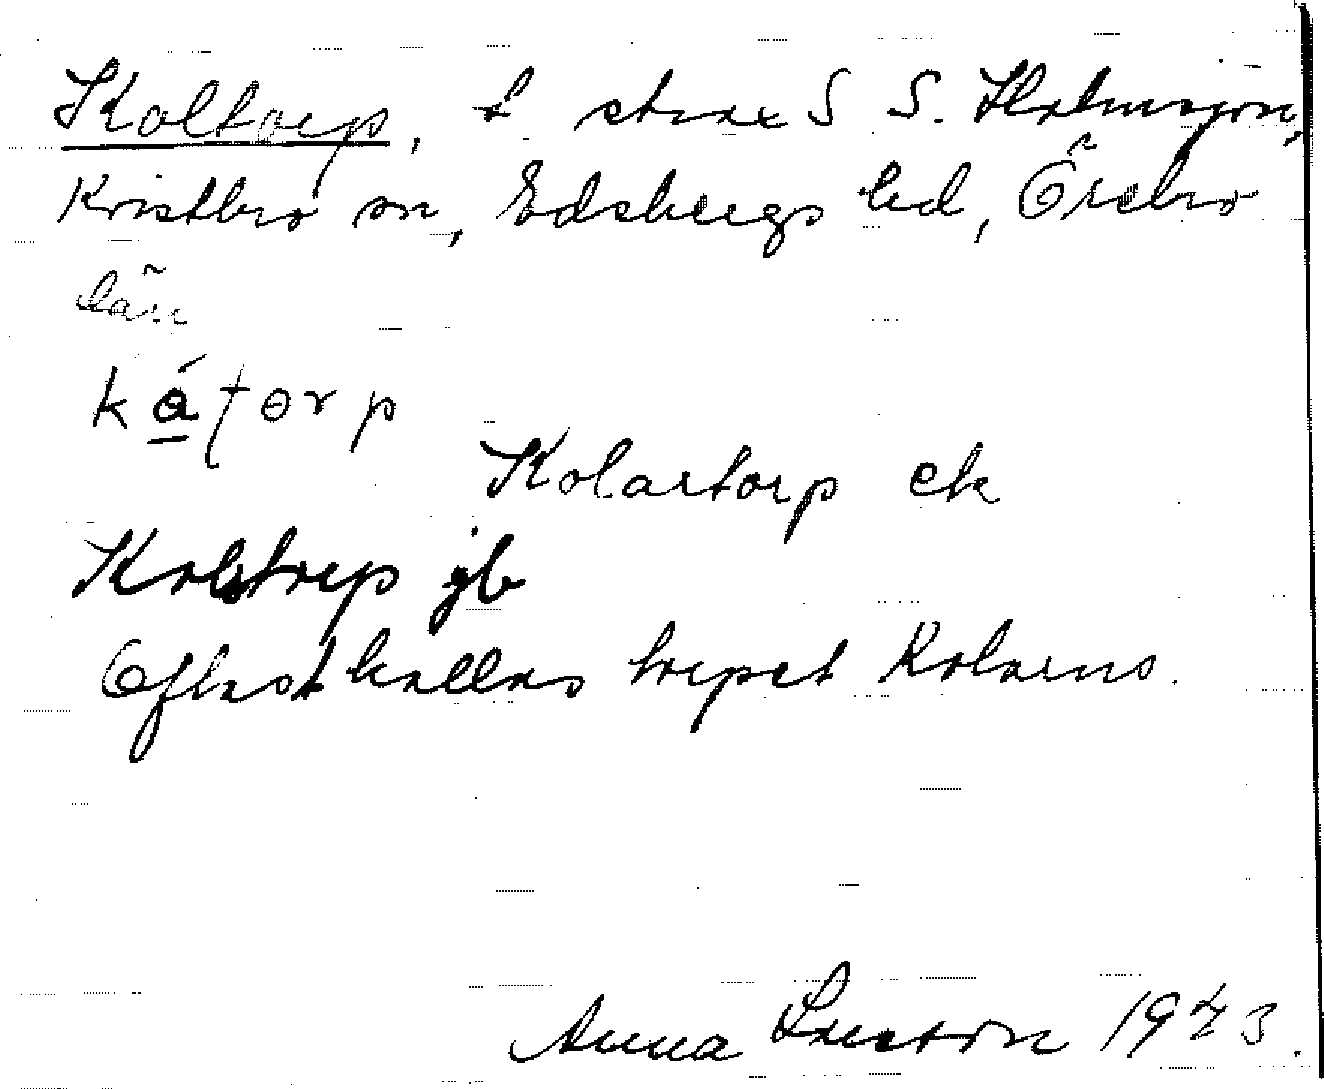 Koltorp, t strax S S. Holmsjön,
Kvistbro sn, Edsbergs hd, Örebro
län
kåtorp
Kolartorp ek
Kolstorp jb
Oftast kallas torpet Kolarns.
Anna Larsson 1973.